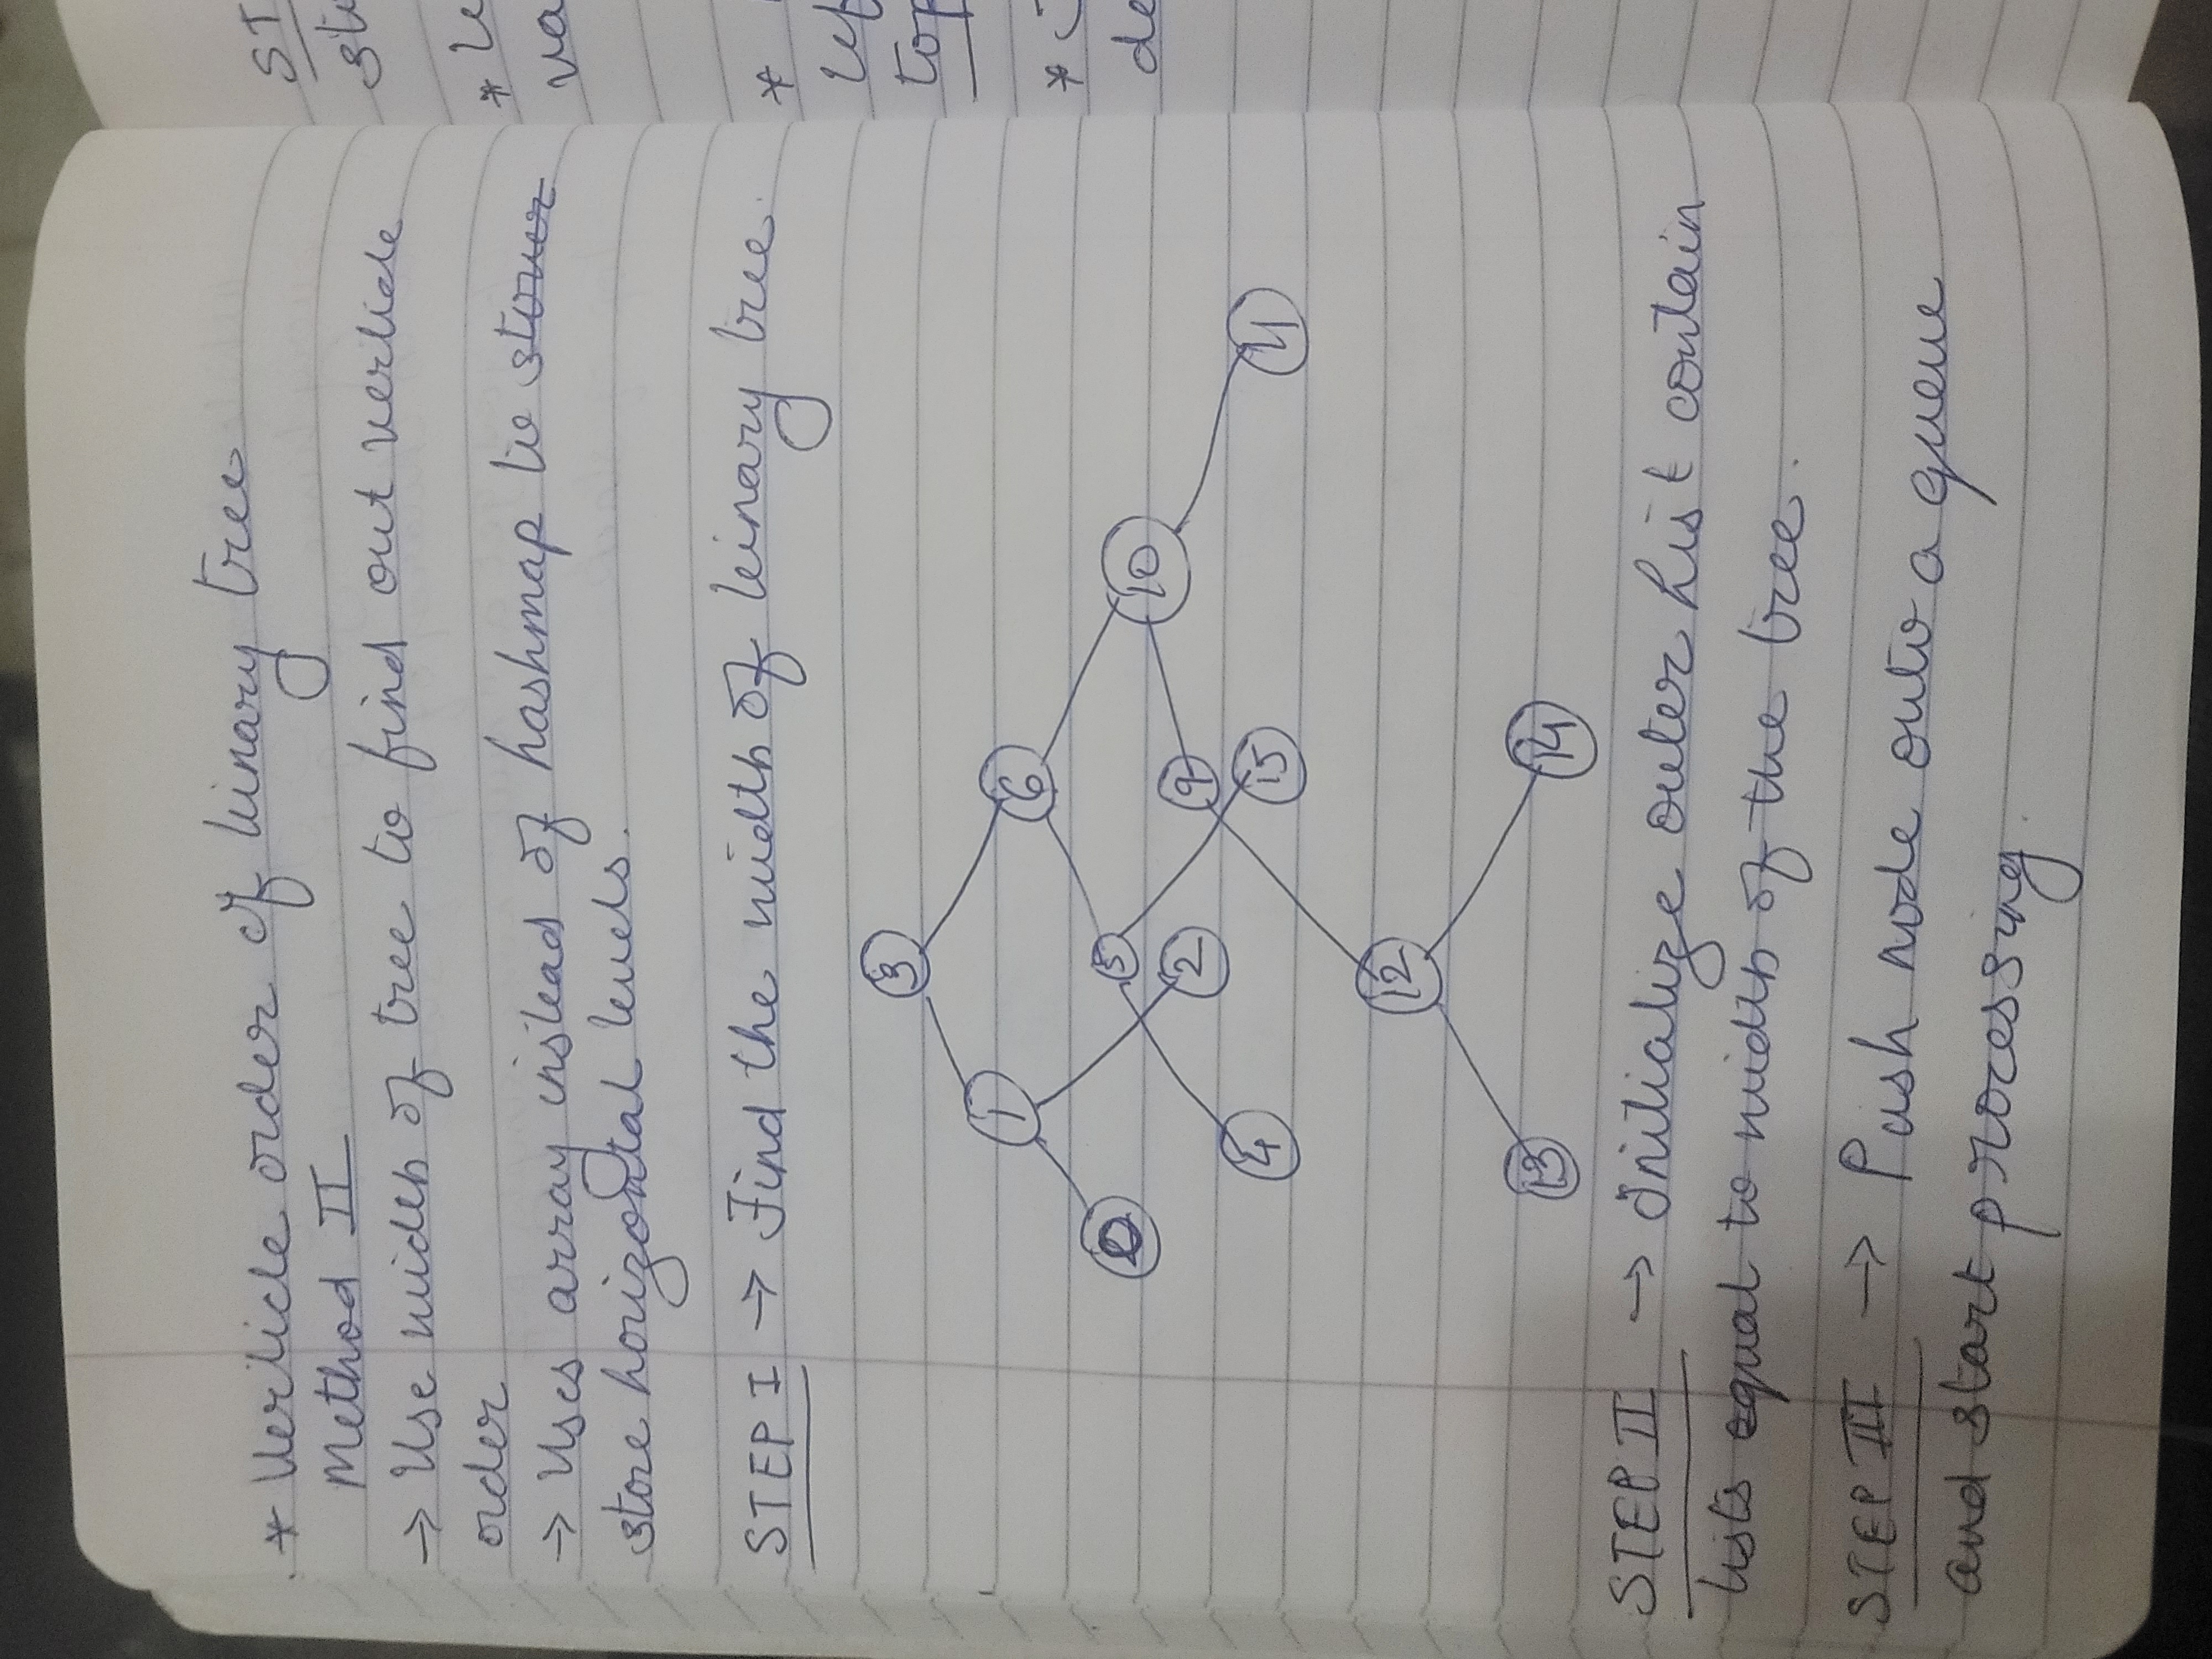 * Verticle order of binary tree
Method II
→ Use width of tree to find out verticle
order
→ Uses array instead of hashmap to stouer
store horizontal levels.
STEP I → Find the width of binary tree.
3
1
6
0
5
10
2
9
4
15
11
12
13
14
STEP II → Initialize outer list contain
lists equal to width of the tree.
STEP III → Push node onto a queue
and start processing.
ST
*
va
*
lef
top
*
de